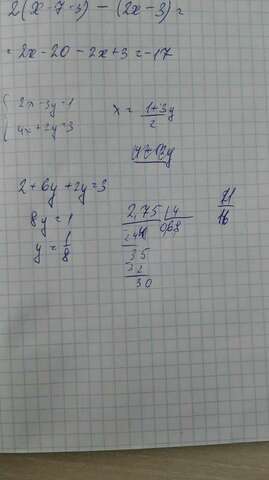 2(x-7-3) - (2x-3)=
= 2x-20-2x+3=-17
2x-3y=1
4x+2y=3
x= 1+3y
2
2+6y+2y=3
8y=1
y= 1
8
2,75 4
0,68
35
32
30
71
16